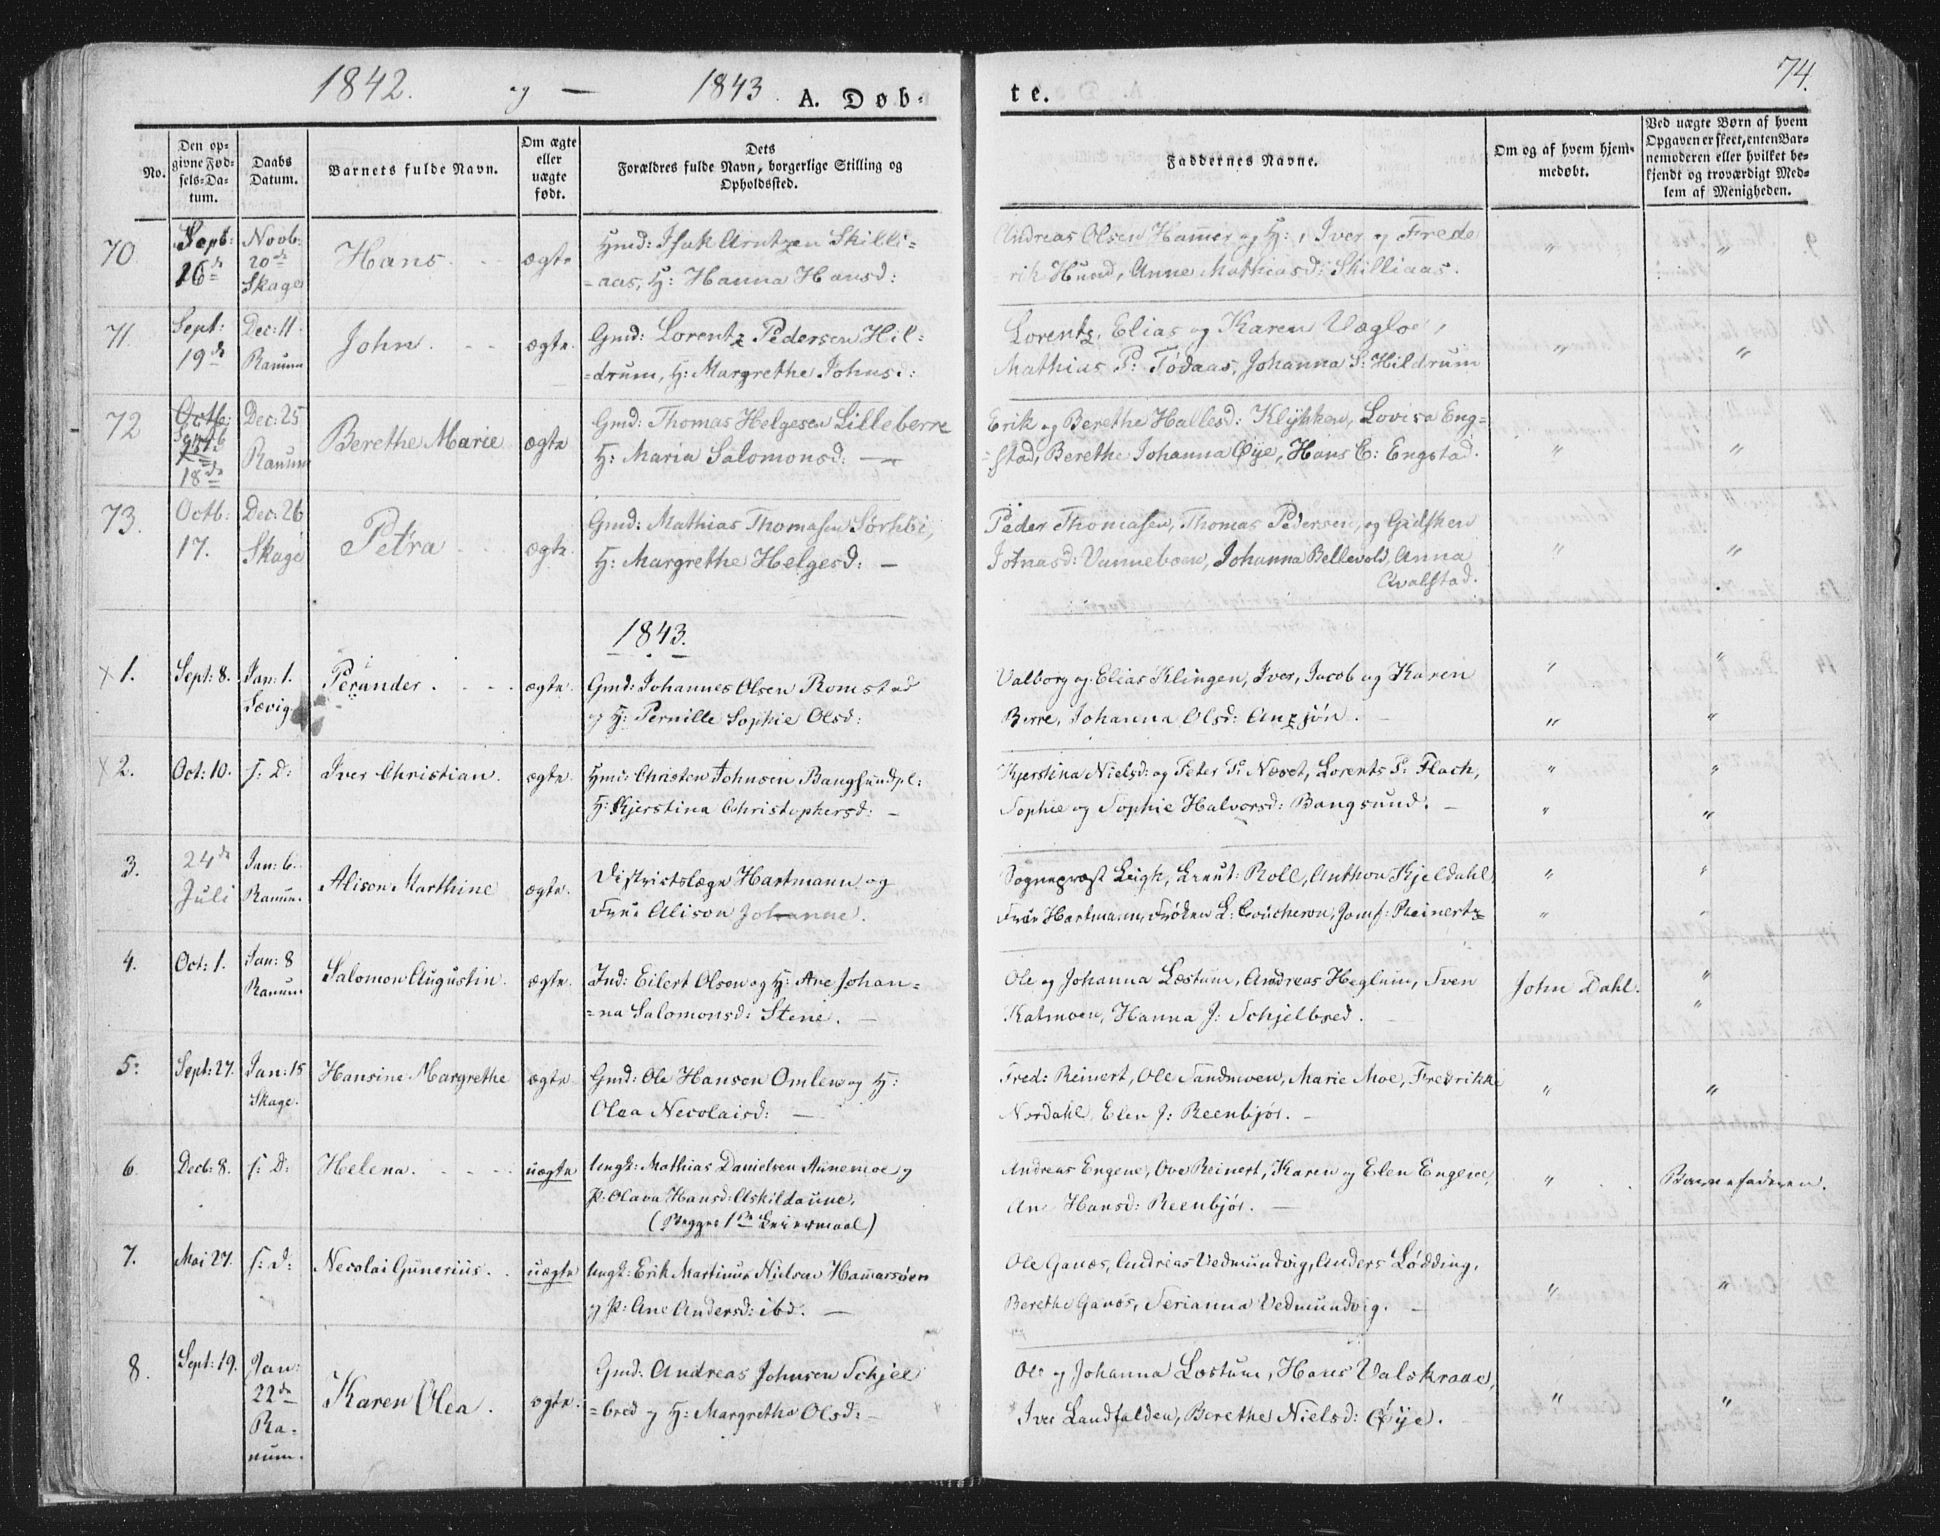 1842. og — 1843. A. Døb-
te.
74.
No.
Den op-
givne Fød-
sels-Da-
tum.
Daabs
Datum.
Barnets fulde Navn.
Om ægte
eller
uægte
født.
Dets
Forældres fulde Navn, borgerlige Stilling og
Opholdssted.
Faddernes Navne.
Om og af hvem hjem-
medøbt.
Ved uægte Børn af hvem
Opgaven er skeet, enten Bar-
nemoderen eller hvilket be-
kjendt og troværdigt Med-
lem af Menigheden.
70. Sept: 16de Novb: 20de Skage Hans. ægte
Hmd: Isak Arntzen Skilli=
=aas, H: Hanna Hansd:
Andreas Olsen Hamer og H:, Iver og Frede
rik Hund, Anne Mathiasd: Skilliaas.
71. Sept: 19de Dec: 11. Ranum John. ægte.
Gmd: Lorentz Pedersen Hil=
=drum, H: Margrethe Johnsd:
Lorentz, Elias og Karen Vægloe,
Mathias P: Tødaas, Johanna S: Hildrum
72 Octb: 18de Dec: 25 Ranum Berethe Marie ægte
Gmd: Thomas Helgesen Lilleberre
H: Maria Salomonsd: —
Erik og Berethe Hallesd: Klykken, Lovisa Eng=
=stad, Berethe Johanna Øye, Hans E: Engstad.
73. Octb. 17. Dec: 26 Skage Petra ægte.
Gmd: Mathias Thomasen Sørhøi,
H: Margrethe Helgesd: —
Peder Thomasen, Thomas Pedersen, og Gidsken
Jotnasd: Vanneboen, Johanna Bellevold, Anna
Qvalstad.
1843.
1. Sept: 8. Jan: 1. Sævig. Perander. ægte.
Gmd: Johannes Olsen Romstad
og H: Pernille Sophie Olsd:
Valborg og Elias Klingen, Iver, Jacob og Karen
Berre, Johanna Olsd: Anzjøn.
2. Oct: 10. s: D: Iver Christian. ægte.
Hmd: Christen Johnsen Bangsundpl:
H: Kjerstina Christophersd: —
Kjerstina Nielsd: og Peter P: Nævet, Lorents P: Flach,
Sophie og Sophie Halvorsd: Bangsund. —
3. 24de Juli Jan: 6. Ranum. Alison Marthine ægte.
Districtslæge Hartmann og
Frue Alison Johanne.
Sogneprest Leigh, Lieut: Roll, Anthon Kjeldahl,
Frue Hartmann, Frøken L: Coucheron, Jomf: Reinertz
4. Oct: 1. Jan: 8 Ranum. Salomon Augustin. ægte.
Ind: Eilert Olsen og H: Ane Johan=
=na Salomonsd: Stene. —
Ole og Johanna Læstum, Andreas Heglum, Sven
Katmoen, Hanna J: Schjelbred.
John Dahl.
5. Sept: 27. Jan: 15 Skage. Hansine Margrethe ægte.
Gmd: Ole Hansen Omlen og H:
Olea Necolaisd: —
Fred: Reinert, Ole Sandmoen, Marie Moe, Fredrikke
Nordahl, Elen J: Reenbjør. —
6. Decb: 8. s: D: Helena. uægte
Ungk: Mathias Danielsen Aunemoe og
P: Olava Hansd: Askildaune.
(Begges 1ste Leiermaal)
Andreas Engene, Ove Reinert, Karen og Elen Engene,
Ane Hansd: Reenbjør. —
Barnefaderen.
7. Mai 27. s: D: Necolai Gunerius. uægte
Ungk: Erik Martinus Nielsen Hamarsøen
og P: Ane Andersd: ibd. —
Ole Ganæs, Andreas Vedmundvig, Anders Lødding,
Berethe Ganæs, Serianna Vedmundvig. —
8. Sept: 19. Jan: 22de Ra-
num. Karen Olea. ægte.
Gmd: Andreas Johnsen Schjel
=bred og H: Margrethe Olsd: —
Ole og Johanna Læstum, Hans Valskraae,
Iver Landfalden, Berethe Nielsd: Øye.